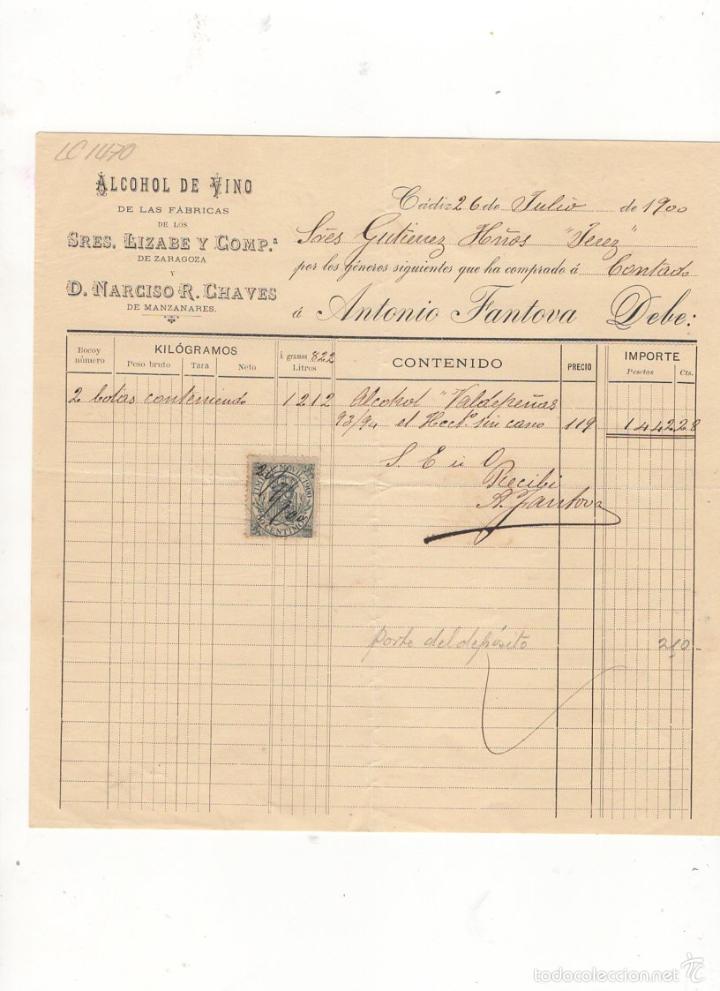 LC 1470
ALCOHOL DE VINO
DE LAS FÁBRICAS
DE LOS
SRES. LIZABE Y COMP.ª
DE ZARAGOZA
Y
D. NARCISO R. CHAVES
DE MANZANARES.
Cádiz 26 de Julio de 1900
Sres Gutierrez Hños "Jerez"
por los géneros siguientes que ha comprado á Contado
á Antonio Fantova Debe:
Bocoy número
KILÓGRAMOS
Peso bruto Tara Neto
á grams 822
Litros
CONTENIDO
PRECIO
IMPORTE
Pesetas Cts.
2 botas conteniendo 1212 Alcohol "Valdepeñas
93/94 el Hect.º sin casco 119 1442.28
S. E ú O
Recibí
A. Fantova
MOVIL 1900
10 CENTIMOS
Porte del depósito 2,10
todocoleccion.net